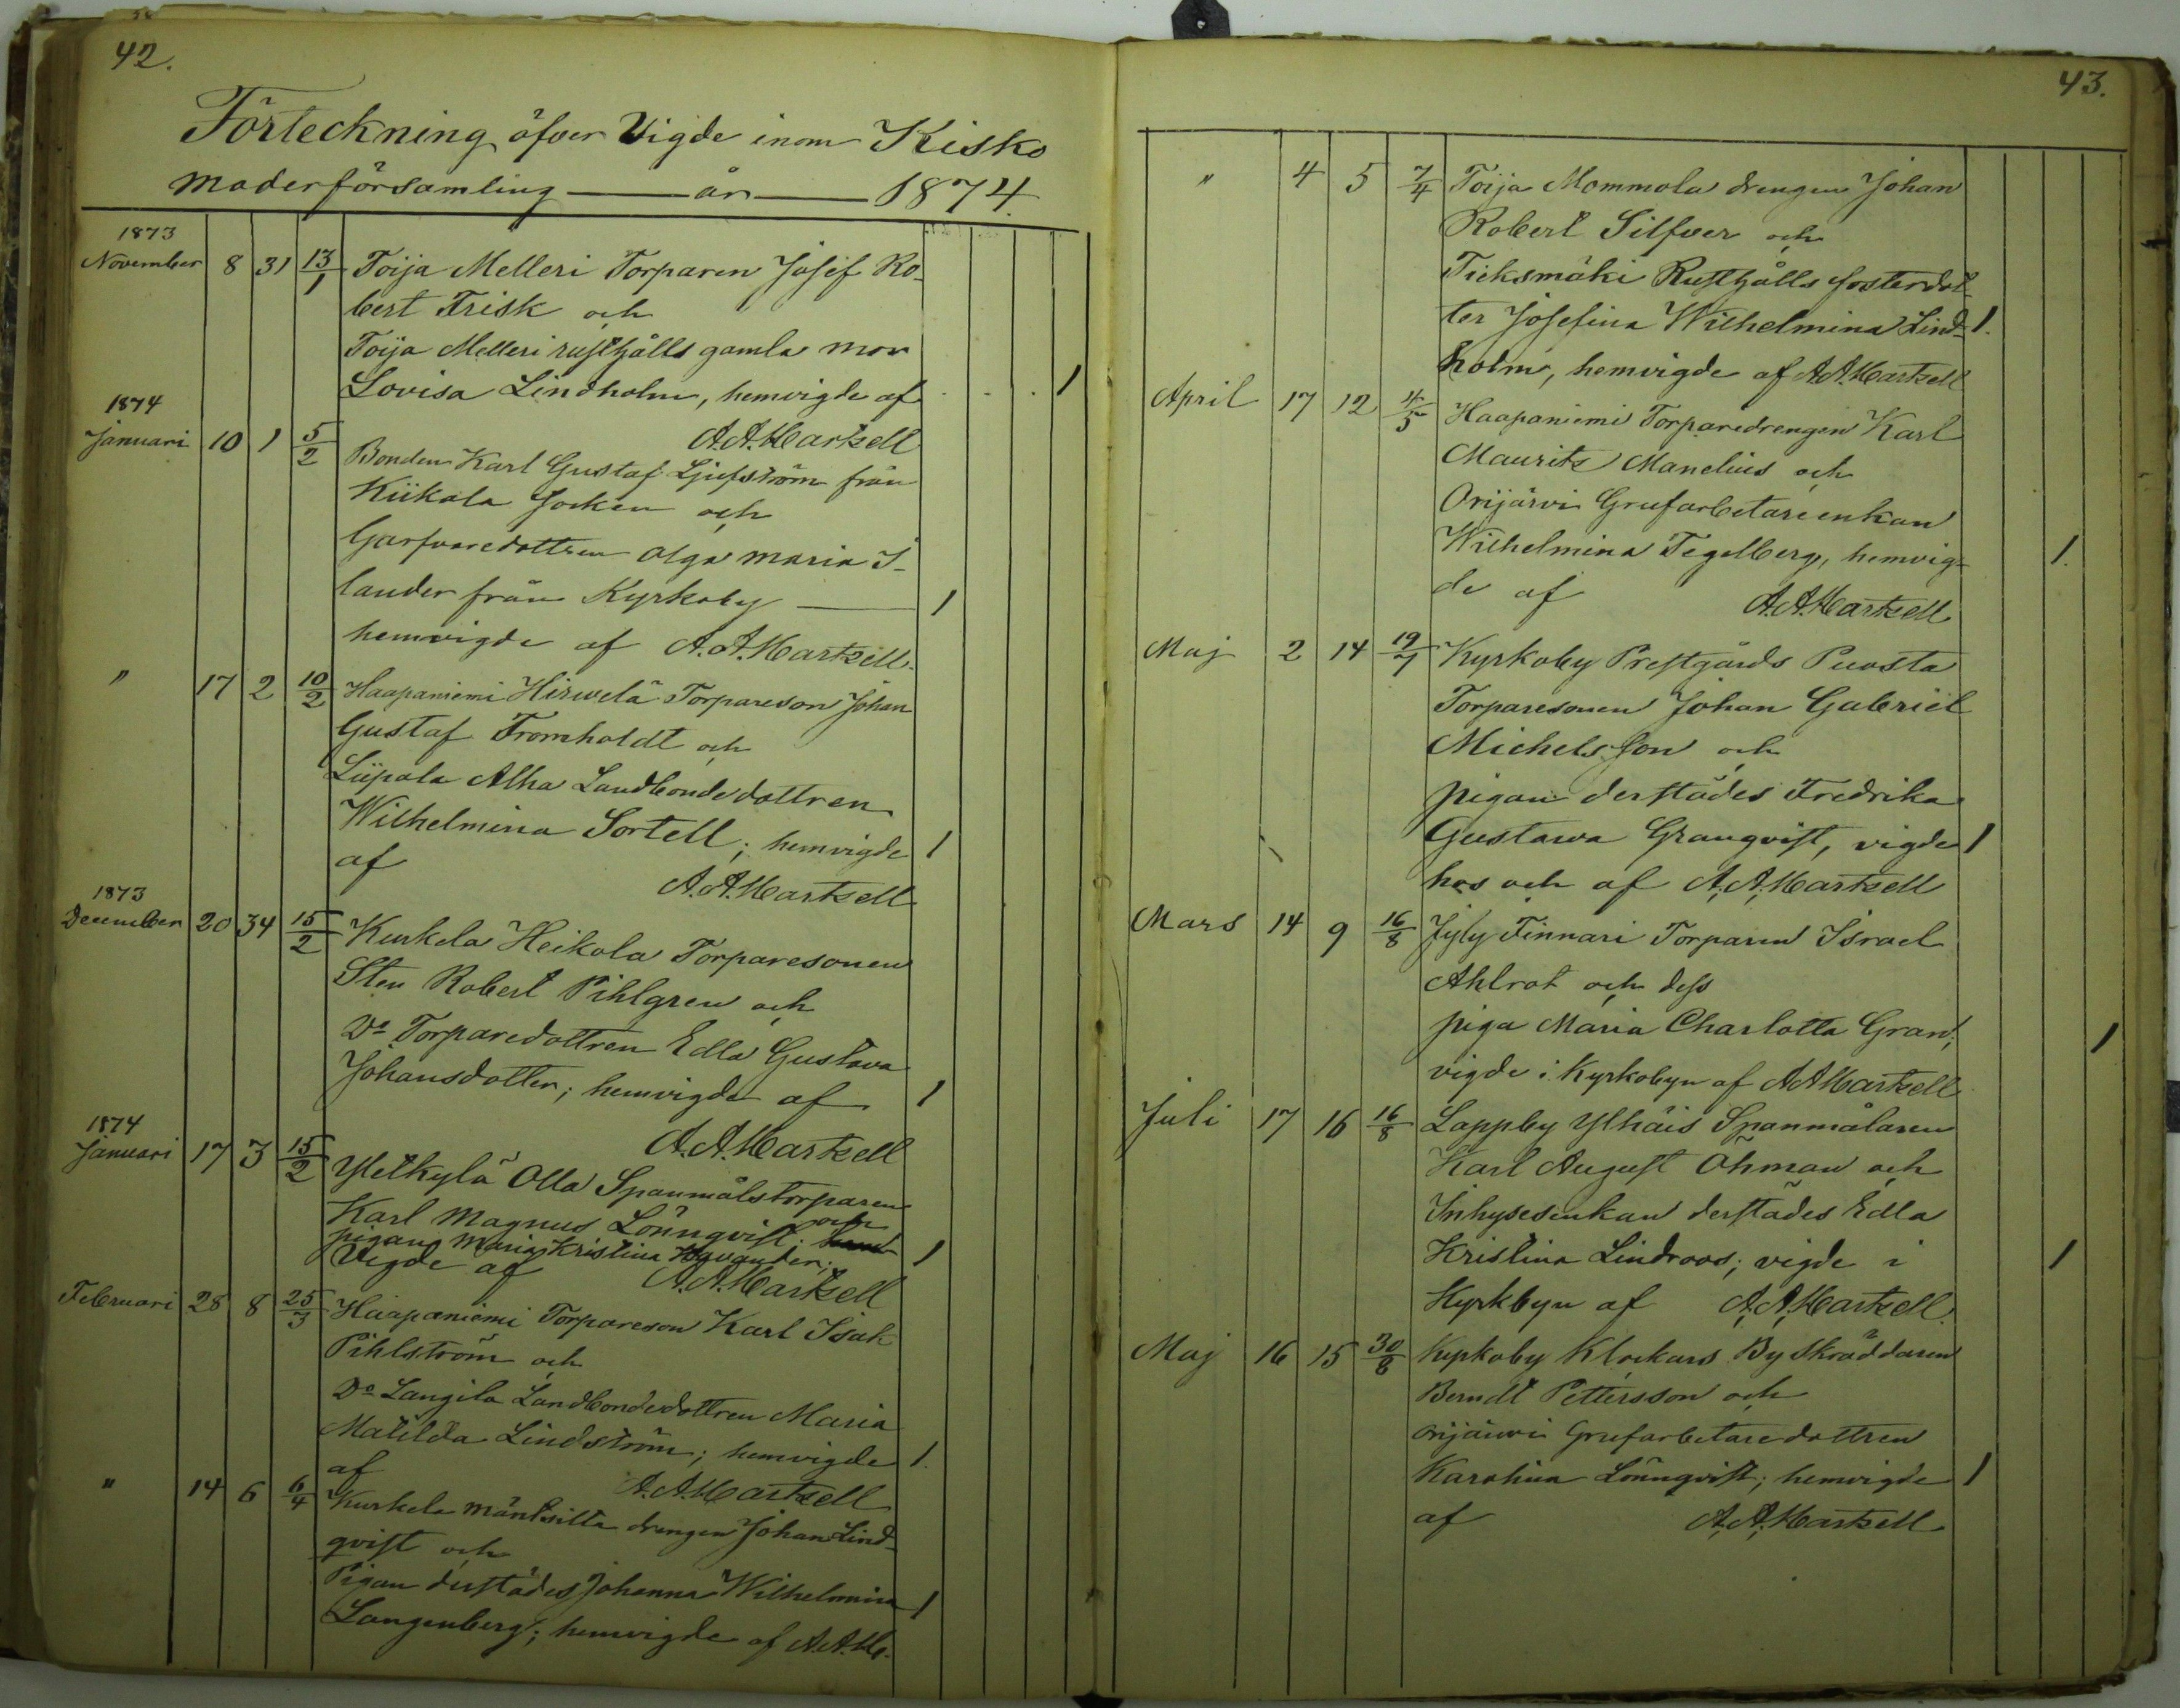 42.
Förteckning öfver Vigde inom Kisko
moderförsamling — år — 1874.
1873
November 8 31 13/1 Toija Melleri Torparen Josef Ro-
bert Frisk och
Toija Melleri rusthålls gamla mor
Lovisa Lindholm, hemvigde af 1
A.A. Hartzell
1874
Januari 10 1 5/2 Bonden Karl Gustaf Ljufström från
Kiikala socken och
Garfvaredottren Olga Maria I-
lander från Kyrkoby — 1
hemvigde af A.A. Hartzell.
" 17 2 10/2 Haapaniemi Hirwelä Torpareson Johan
Gustaf Fromholdt och
Liipola Alha Landbondedottren
Wilhelmina Sortell; hemvigde 1
af A.A. Hartzell
1873
December 20 34 15/2 Kurkela Heikola Torparesonen
Sten Robert Pihlgren och
Do Torparedottren Edla Gustava
Johansdotter; hemvigde af 1
A.A. Hartzell
1874
Januari 17 3 15/2 Yletkylä Olla Spanmålstorparen
Karl Magnus Lönnqvist och
pigan Maria Kristina; 1
Vigde af A.A. Hartzell
Februari 28 8 25/3 Haapaniemi Torpareson Karl Isak
Pihlström och
Do Langila Landbondedottren Maria
Matilda Lindström; hemvigde 1.
af A.A. Hartzell
" 14 6 6/4 Kurkela Mäntsilta drengen Johan Lind-
qvist och
Pigan derstädes Johanna Wilhelmina 1
Langenberg; hemvigde af A.A.H.
43.
" 4 5 7/4 Toija Mommola drengen Johan
Robert Silfver och
Tieksmäki Rusthålls fosterdot-
ter Josefina Wilhelmina Lind- 1.
holm, hemvigde af A.A. Hartzell
April 17 12 4/5 Haapaniemi Torparedrengen Karl
Mauritz Manelius och
Orijärvi Grufarbetareenkan
Wilhelmina Tegelberg, hemvig- 1.
de af A.A. Hartzell
Maj 2 14 19/7 Kyrkoby Prestgårds Puosta
Torparesonen Johan Gabriel
Michelsson och
pigan derstädes Fredrika
Gustawa Granqvist, vigde 1
hos och af A.A. Hartzell
Mars 14 9 16/8 Jyly Finnari Torparen Israel
Ahlrot och dess
piga Maria Charlotta Gran; 1
vigde i Kyrkobyn af A.A. Hartzell
Juli 17 16 16/8 Lappby Ylhäis Spanmålaren
Karl August Öhman och
Inhysesenkan derstädes Edla
Kristina Lindroos; vigde i 1
Kyrkbyn af A.A. Hartzell.
Maj 16 15 30/8 Kyrkoby Klockars By Skräddaren
Berndt Pettersson och
Orijärvi Grufarbetaredottren
Karolina Lönnqvist; hemvigde 1
af A.A. Hartzell